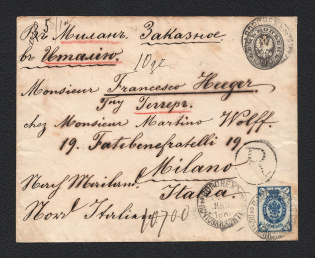 Въ Миланъ. Заказное.
въ Италію.
Monsieur Francesco Heeger
Гну Гегеръ
chez Monsieur Martino Wolff
19. Fatebenefratelli 19
Milano
Nach Mailand. Italia.
Nord Italien
10700